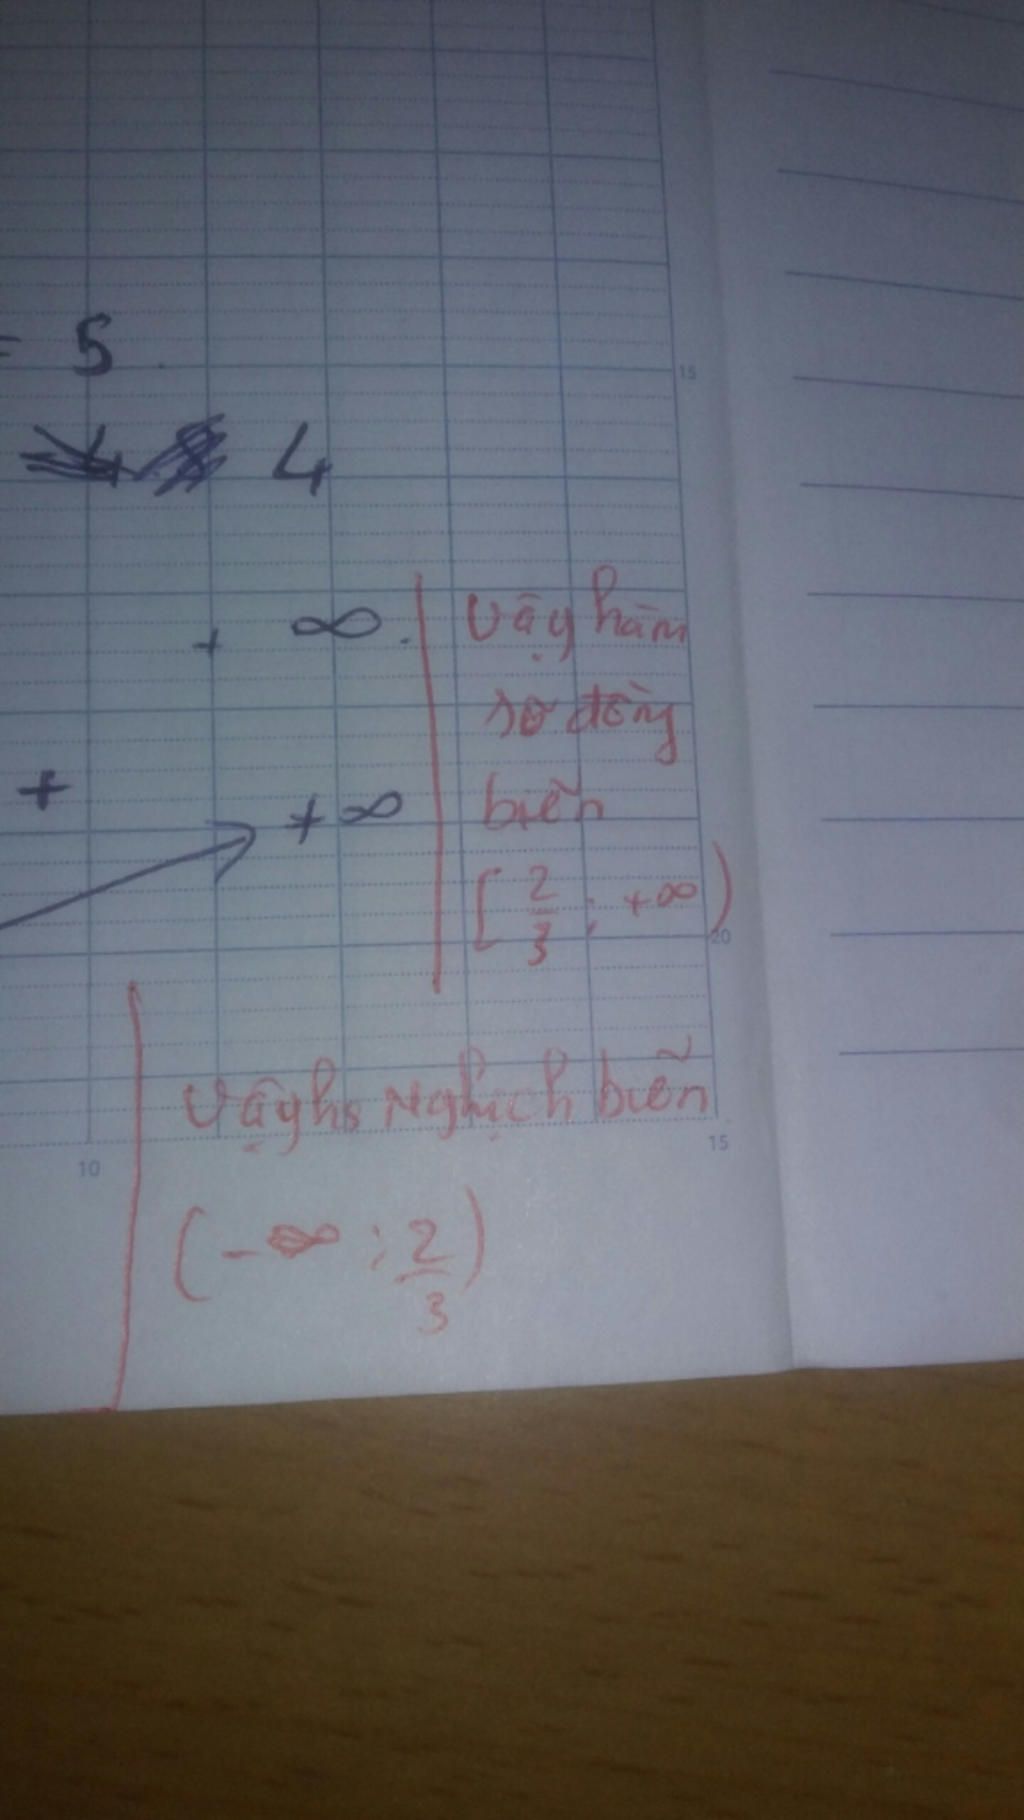 = 5
4
+ ∞
Vậy hàm
số đồng
biến
+
+ ∞
[ 2/3 ; +∞)
Vậy hs Nghịch biến
(-∞ ; 2/3)
15
20
10
15